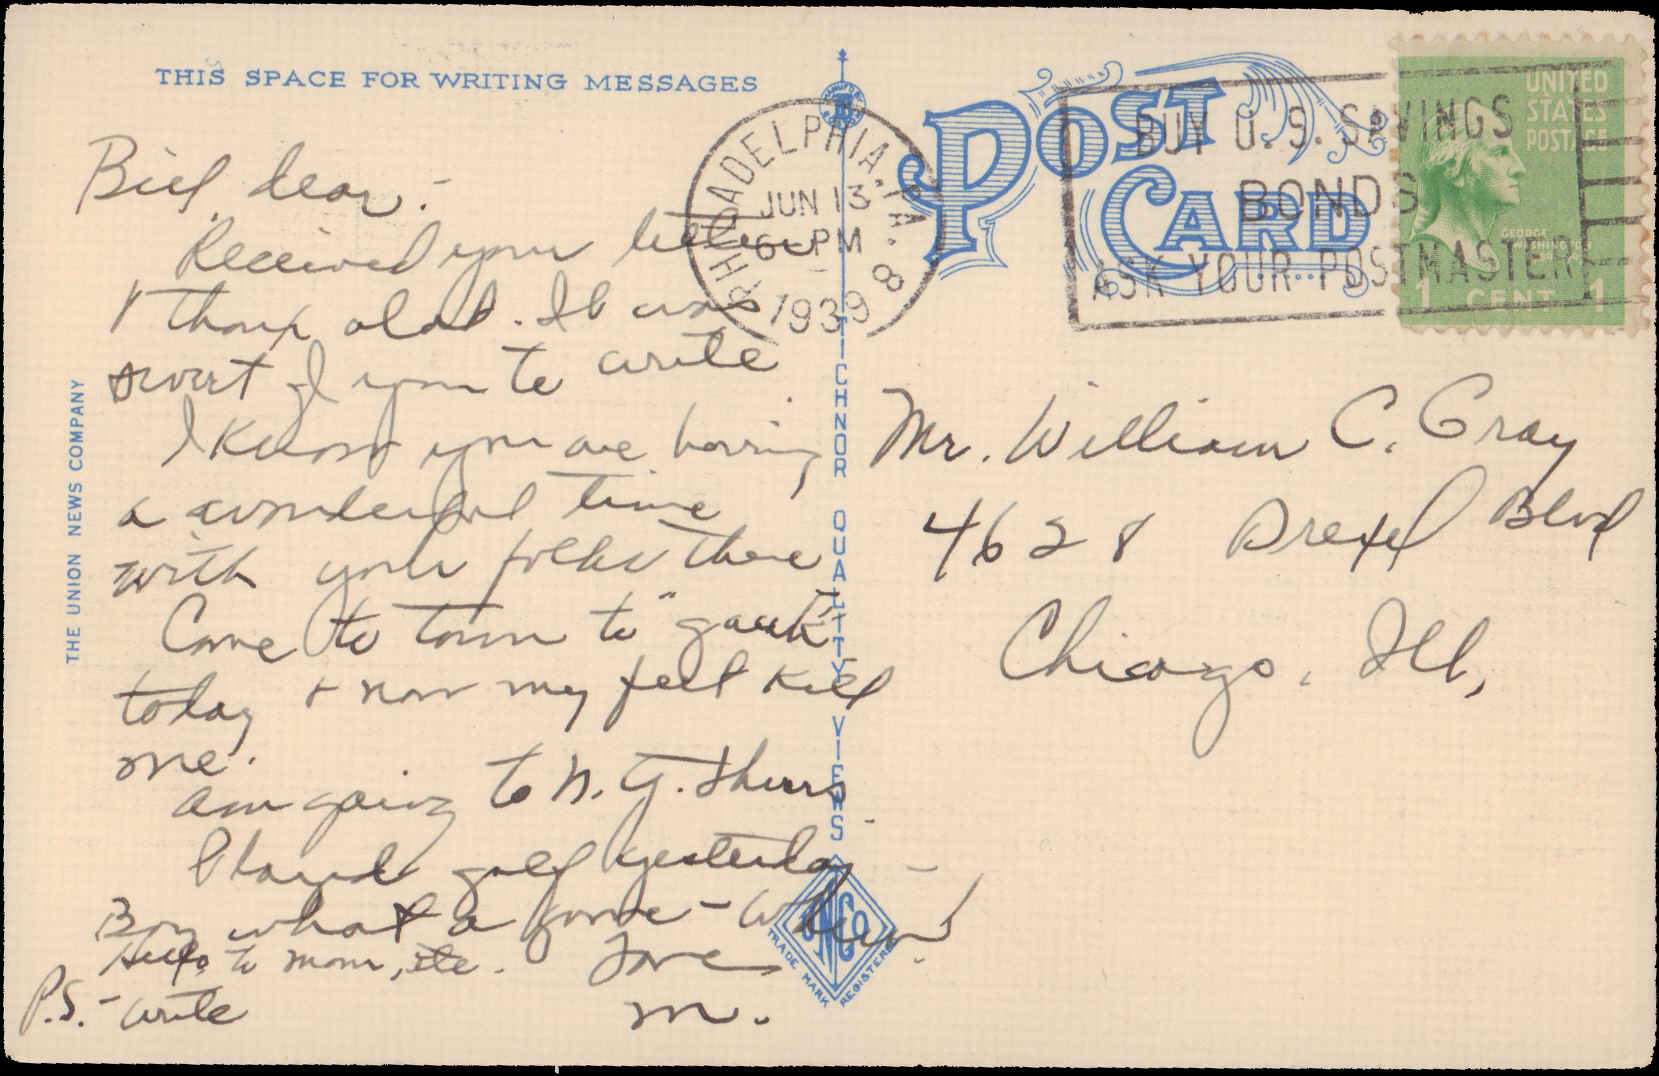 THIS SPACE FOR WRITING MESSAGES
Bill dear:-
Received your letter
& thanx alot. It was
sweet of you to write
I know you are having
a wonderful time
with your folks there
Come to town to "gawk"
today & now my feet kill
me.
Am going to N.Y. Thurs
Played golf yesterday -
Boy what a game -
Hello to Mom, etc. Love
P.S. - write M.
THE UNION NEWS COMPANY
TICHNOR QUALITY VIEWS
TRADE MARK REGISTERED
POST CARD
PHILADELPHIA, PA. 8
JUN 13
6 - PM
1939
BUY U.S. SAVINGS
BONDS
ASK YOUR POSTMASTER
UNITED
STATES
POSTAGE
GEORGE
WASHINGTON
1 CENT 1
Mr. William C. Gray
4628 Drexel Blvd
Chicago, Ill,